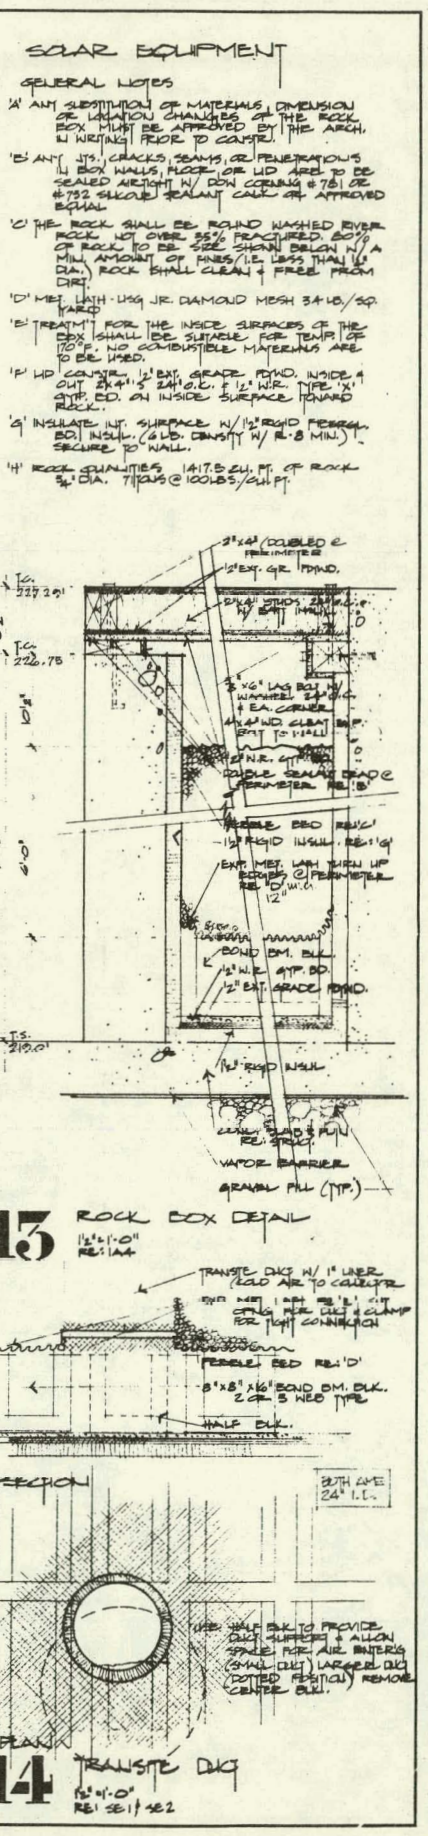 SOLAR EQUIPMENT
GENERAL NOTES
'A' ANY SUBSTITUTION OF MATERIALS, DIMENSION
OR LOCATION CHANGES OF THE ROCK
BOX MUST BE APPROVED BY THE ARCH.
IN WRITING PRIOR TO CONSTR.
'B' ANY JTS., CRACKS, SEAMS, OR PENETRATIONS
IN BOX WALLS, FLOOR, OR LID ARE TO BE
SEALED AIRTIGHT W/ DOW CORNING #781 OR
#732 SILICONE SEALANT CAULK OR APPROVED
EQUAL
'C' THE ROCK SHALL BE ROUND WASHED RIVER
ROCK, NOT OVER 35% FRACTURED. 80%
OF ROCK TO BE SIZE SHOWN BELOW W/ A
MIN. AMOUNT OF FINES (I.E. LESS THAN
DIA.) ROCK SHALL CLEAN & FREE FROM
DIRT.
'D' MET. LATH - USG JR. DIAMOND MESH 3.4 LB./SQ.
YARD
'E' TREATM'T FOR THE INSIDE SURFACES OF THE
BOX SHALL BE SUITABLE FOR TEMP. OF
170°F. NO COMBUSTIBLE MATERIALS ARE
TO BE USED.
'F' LID CONSTR. 1/2" EXT. GRADE PLYWD. INSIDE &
OUT 2"X4"'S 24" O.C. & 1/2" W.R. TYPE 'X'
GYP. BD. ON INSIDE SURFACE TOWARD
ROCK.
'G' INSULATE INT. SURFACE W/ 1 1/2" RIGID FIBERGL.
BD. INSUL. (6 LB. DENSITY W/ R-8 MIN.)
SECURE TO WALL.
'H' ROCK QUALITIES 1417.5 CU. FT. OF ROCK
3/4" DIA. 71 TONS @ 100 LBS./CU. FT.
2"X4" (DOUBLED @
PERIMETER
1/2" EXT. GR PLYWD.
T.C.
227.29'
2"X4" STUDS 24" O.C.
W/ BATT INSUL.
T.C.
226.75
X6" LAG BOLT W/
WASHER 24" O.C.
& EA. CORNER
4"X4" WD. CLEAT
BOLT TO WALL
10'2"
1/2" W.R. GYP. BD.
DOUBLE SEALANT BEAD @
PERIMETER RE: 'B'
PEBBLE BED RE: 'C'
1 1/2" RIGID INSUL. RE: 'G'
6'-0"
EXP. MET. LATH TURN UP
EDGES @ PERIMETER
RE: 'D'
12"
BOND BM. BLK.
1/2" W.R. GYP. BD.
1/2" EXT. GRADE PLYWD.
T.S.
219.01
1 1/2" RIGID INSUL
CONC. SLAB &
RE: STRUCT.
VAPOR BARRIER
GRAVEL FILL (TYP.)
13 ROCK BOX DETAIL
1/2"=1'-0"
RE: 1A4
TRANSITE DUCT W/ 1" LINER
(COLD AIR TO COLLECTOR
EXP. MET. LATH CUT
OPNG. FOR DUCT & CLAMP
FOR TIGHT CONNECTION
PEBBLE BED RE: 'D'
8"X8"X16" BOND BM. BLK.
2 OR 3 WEB TYPE
HALF BLK.
SECTION
BOTH ARE
24" I.D.
USE HALF BLK TO PROVIDE
DUCT SUPPORT & ALLOW
SPACE FOR AIR ENTER'G
(SMALL DUCT) LARGER DUCT
(DOTTED POSITION) REMOVE
CENTER BLK.
PLAN
14 TRANSITE DUCT
1/2"=1'-0"
RE: SE1 / SE2